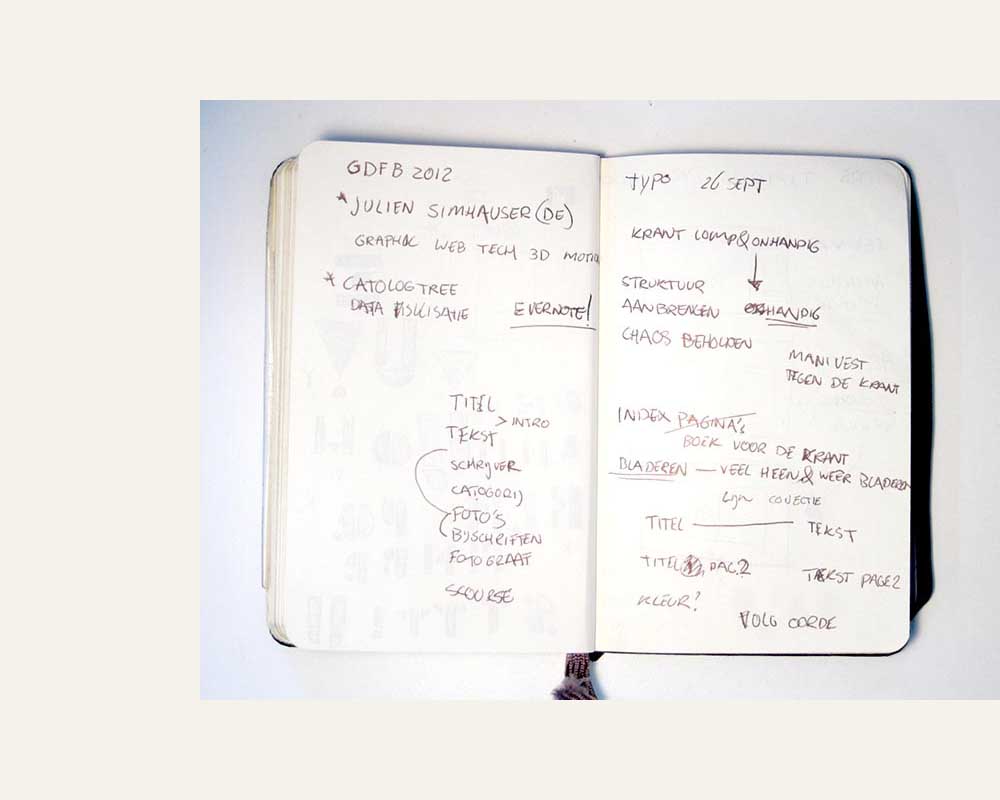 GDFB 2012
* JULIEN SIMHAUSER (DE)
GRAPHIC WEB TECH 3D MOTION
* CATOLOGTREE
DATA VISUISATIE EVERNOTE!
TITEL
> INTRO
TEKST
SCHRIJVER
CATOGORIJ
FOTO'S
BIJSCHRIFTEN
FOTOGRAAF
SCOURSE
TYPO 26 SEPT
KRANT LOMP & ONHANDIG
STRUKTUUR
AANBRENGEN HANDIG
CHAOS BEHOUDEN
MANIVEST
TEGEN DE KRANT
INDEX PAGINA'S
BOEK VOOR DE KRANT
BLADEREN — VEEL HEEN & WEER BLADEREN
Lijn CONECTIE
TITEL — TEKST
TITEL PAG 2 TEKST PAGE 2
KLEUR?
VOLG OORDE